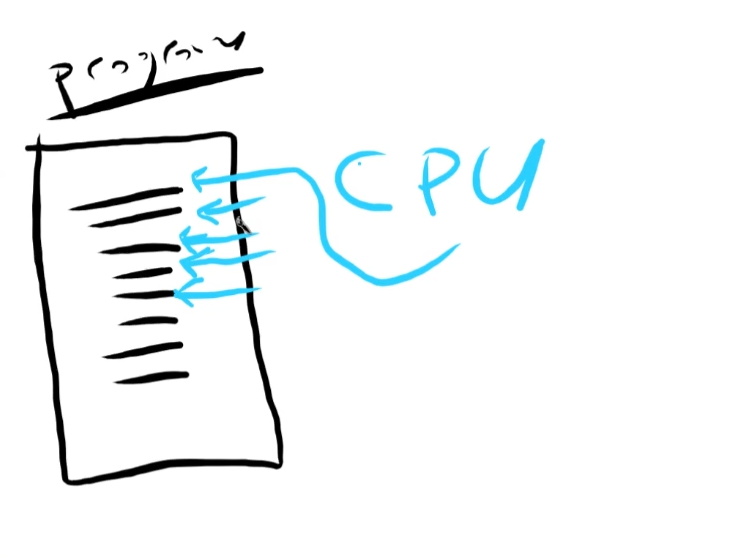 program
CPU